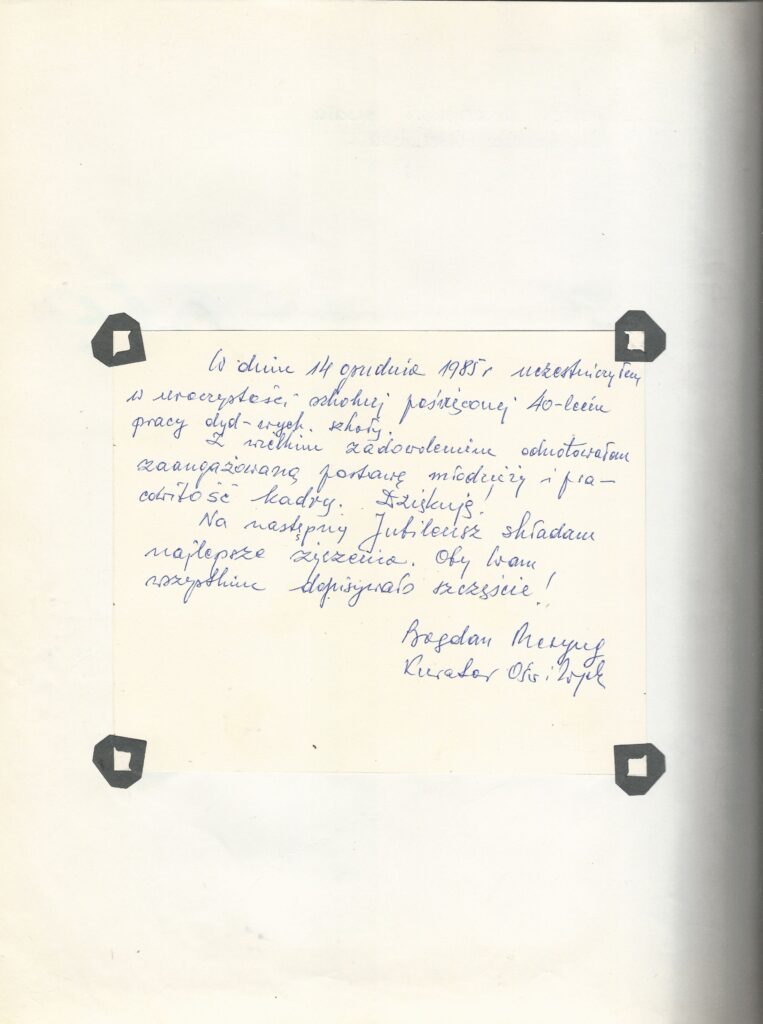 W dniu 14 grudnia 1985 r uczestniczyłem
w uroczystości szkolnej poświęconej 40-leciu
pracy dyd-wych. szkoły.
Z wielkim zadowoleniem odnotowałem
zaangażowaną postawę młodzieży i pra-
cowitość kadry. Dziękuję!
Na następny Jubileusz składam
najlepsze życzenia. Oby Wam
wszystkim dopisywało szczęście!
Bogdan
Kurator Ośw i Wych